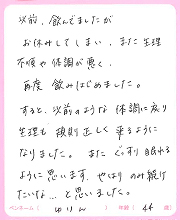 以前、飲んでましたが
お休みしてしまい、また生理
不順や体調が悪く、
再度飲みはじめました。
すると、以前のような体調に戻り
生理も規則正しく来るように
なりました。またぐっすり眠れる
ように思います。やはりのみ続け
たいな…と思いました。
ペンネーム ゆりん 年齢 44 歳